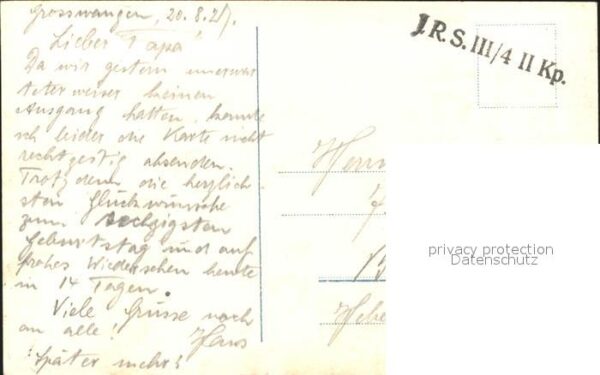 Grosswangen, 20.8.21.
Lieber Papa!
Da wir gestern unerwar
teterweise keinen
Ausgang hatten, konnte
ich leider die Karte nicht
rechtzeitig absenden.
Trotzdem die herzlich-
sten Glückwünsche
zum sechzigsten
Geburtstag und auf
frohes Wiedersehen heute
in 14 Tagen.
Viele Grüsse noch
an alle! Hans
Später mehr!
J.R.S. III/4 II Kp.
Herrn
privacy protection
Datenschutz